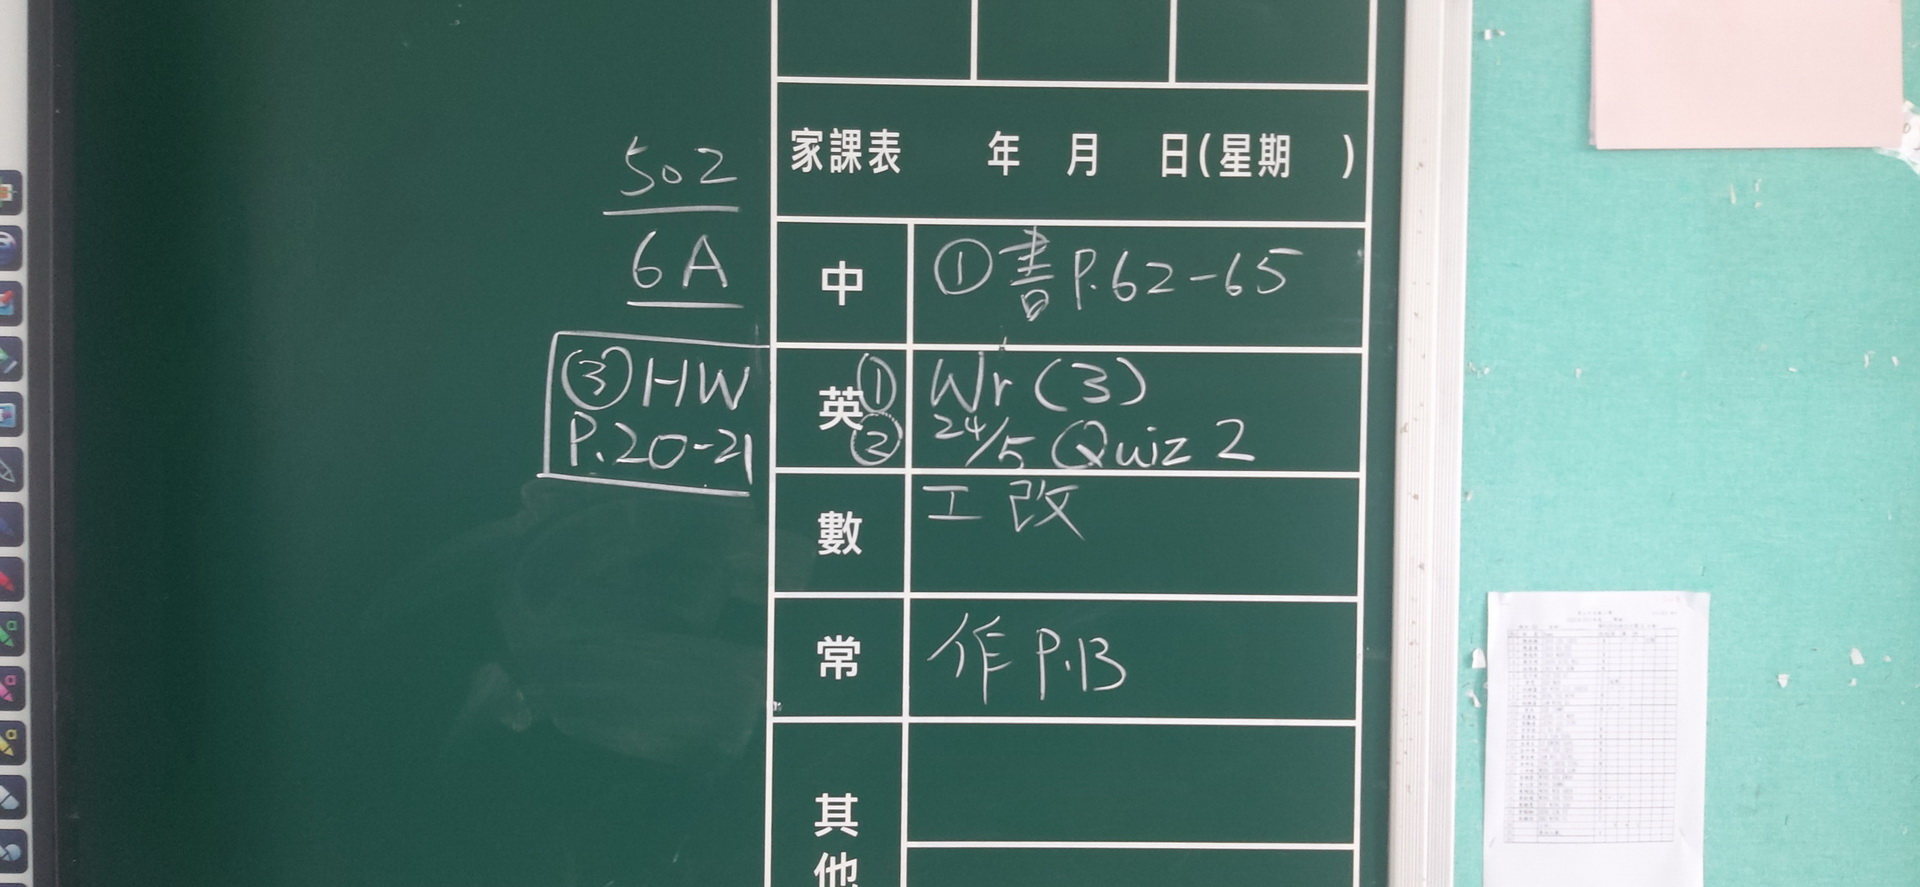 502
6A
家課表 年 月 日(星期 )
中 ①書P.62-65
英 ① Wr (3)
② 24/5 Quiz 2
③HW
P.20-21
數 工改
常 作 P.13
其他